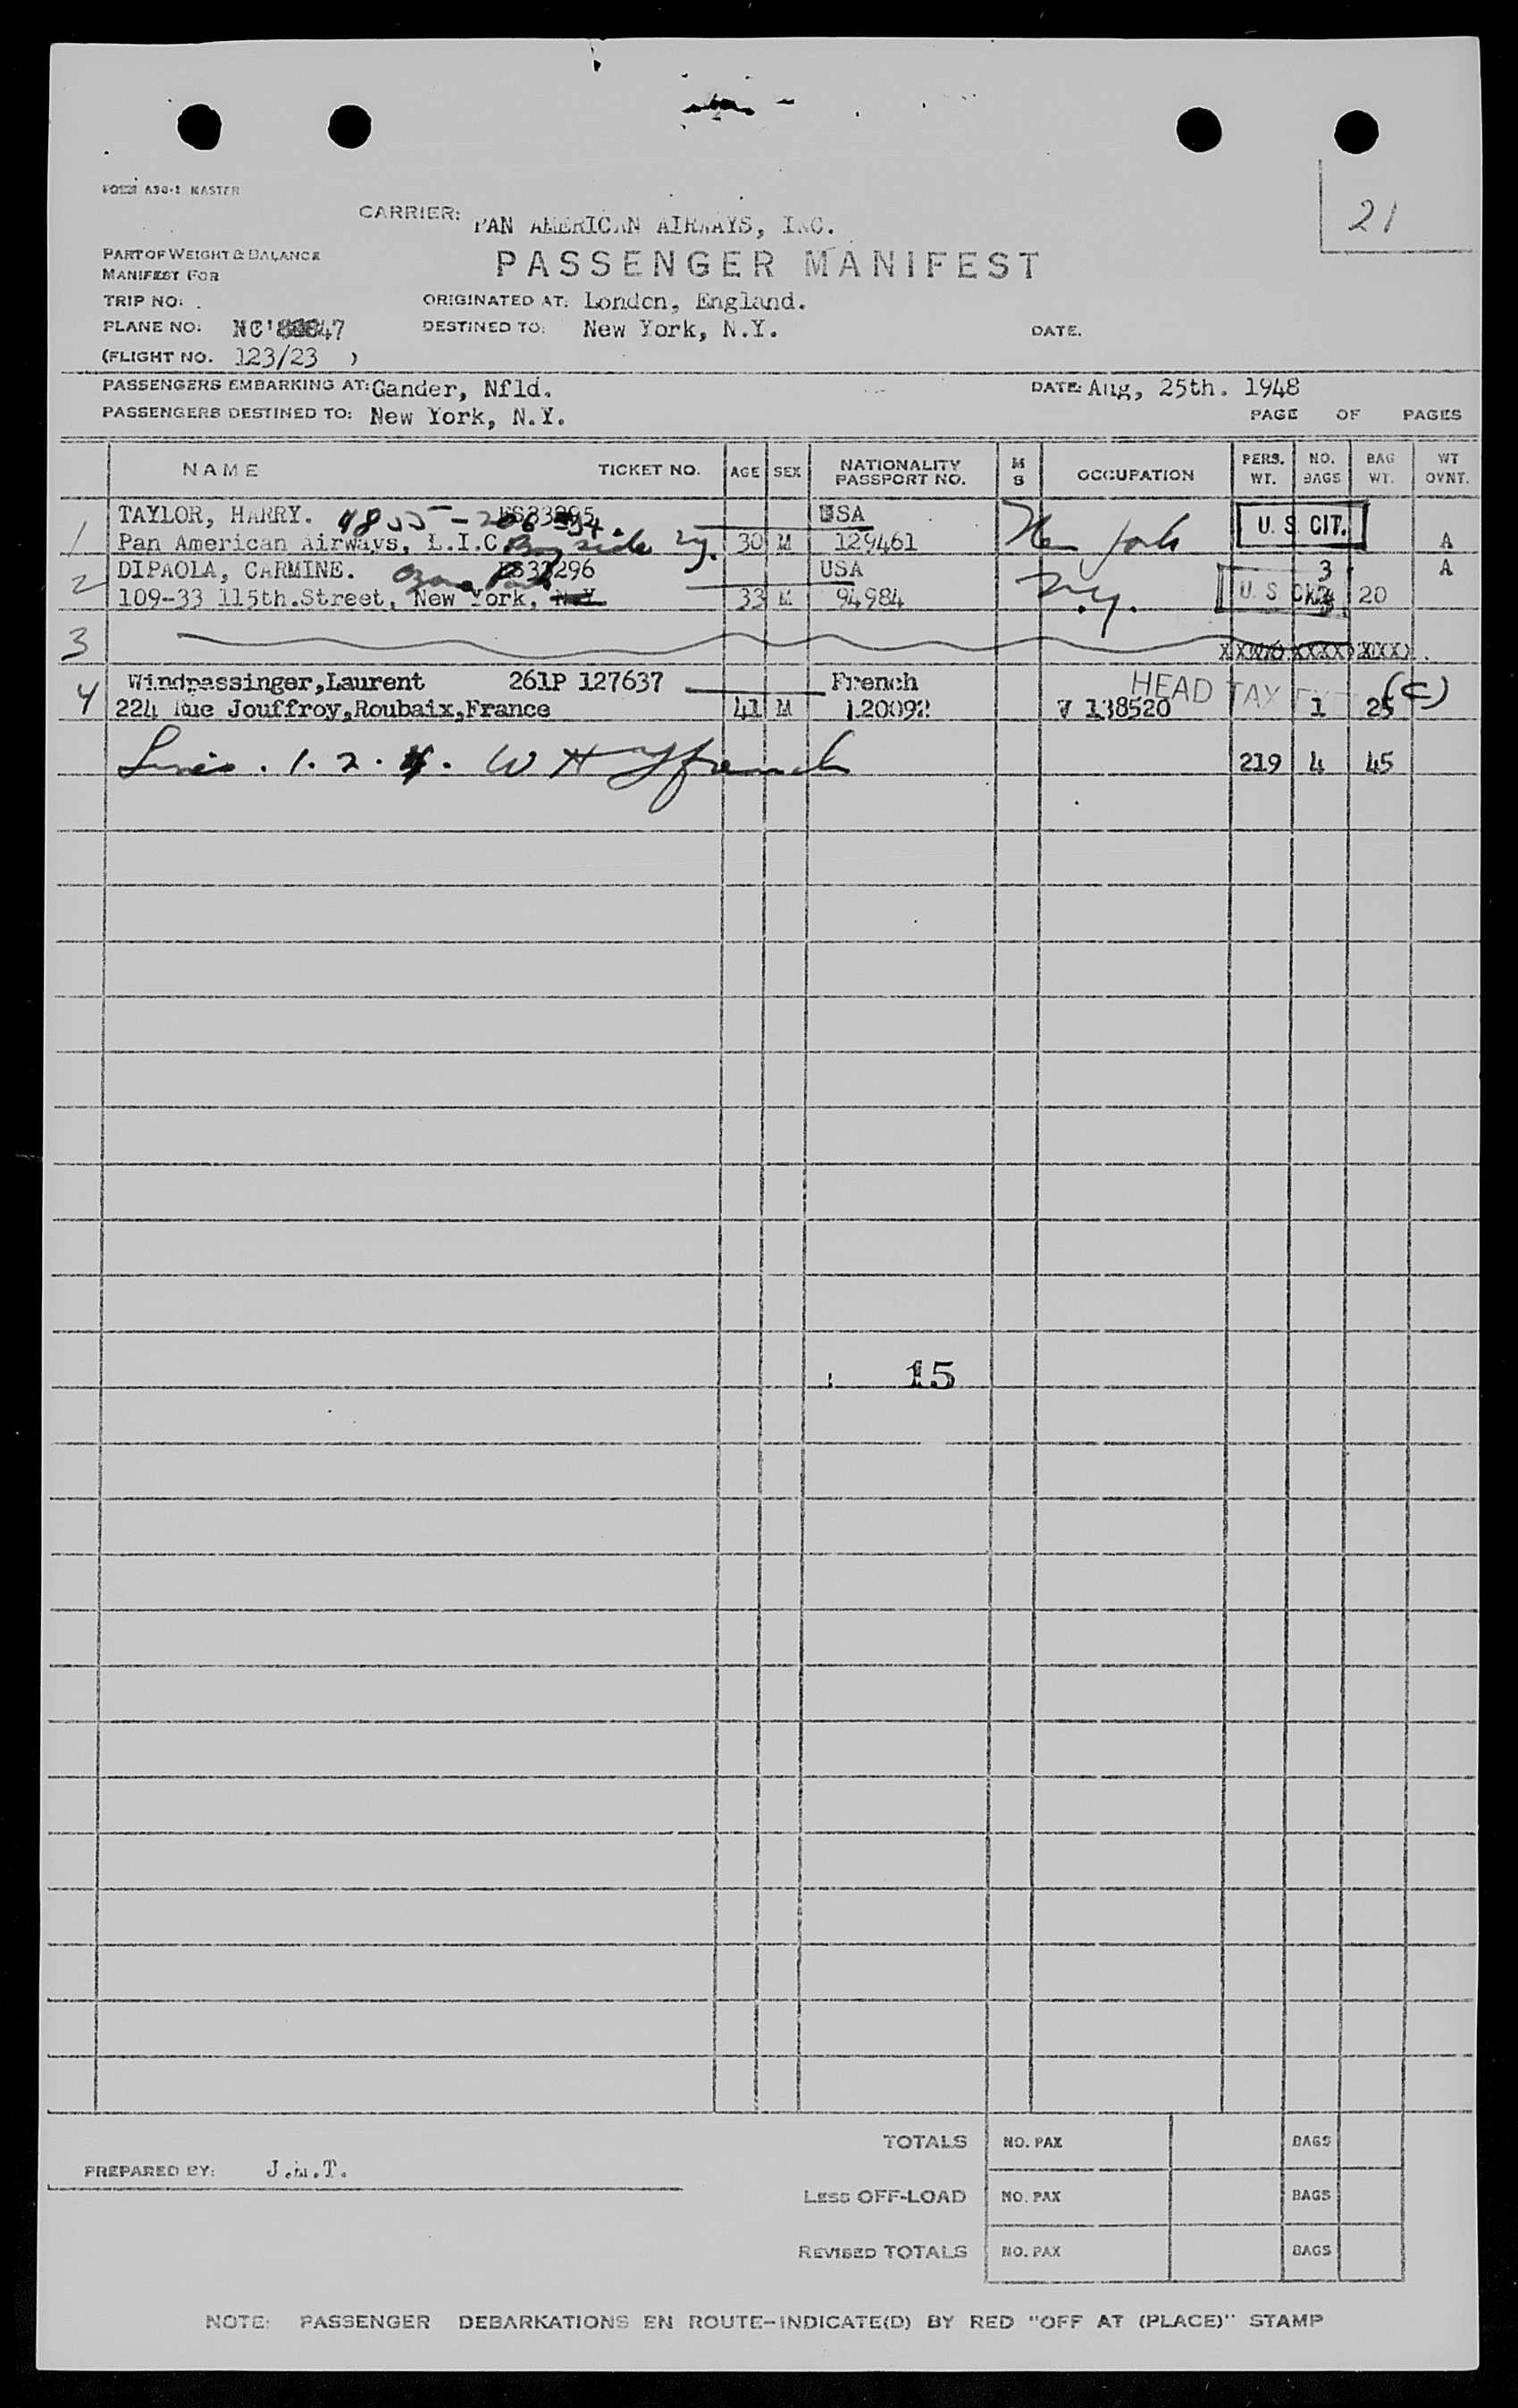 FORM A30-1 MASTER
21
CARRIER: PAN AMERICAN AIRWAYS, INC.
PART OF WEIGHT & BALANCE
MANIFEST FOR
PASSENGER MANIFEST
TRIP NO:
ORIGINATED AT: London, England.
PLANE NO: NC'88847
DESTINED TO: New York, N.Y.
DATE.
(FLIGHT NO. 123/23 )
PASSENGERS EMBARKING AT: Gander, Nfld.
DATE: Aug, 25th. 1948
PASSENGERS DESTINED TO: New York, N.Y.
PAGE OF PAGES
NAME TICKET NO. AGE SEX NATIONALITY PASSPORT NO. M S OCCUPATION PERS. WT. NO. BAGS BAG WT. WT OVNT.
TAYLOR, HARRY. 4855-206 USA U. S. CIT.
1 Pan American Airways, L.I.C. Bayside Ny. 30 M 129461 New York A
DIPAOLA, CARMINE. Ozone Park USA 3 A
2 109-33 115th.Street, New York, N.Y. 33 M 94984 N.y. U. S 20
3
Windpassinger,Laurent 261P 127637 French HEAD TAX (C)
4 224 Rue Jouffroy,Roubaix,France 41 M 120092 V 138520 1 25
Lines. 1. 2. 4. W H French 219 4 45
15
TOTALS NO. PAX BAGS
PREPARED BY: J.M.T.
LESS OFF-LOAD NO. PAX BAGS
REVISED TOTALS NO. PAX BAGS
NOTE: PASSENGER DEBARKATIONS EN ROUTE-INDICATE(D) BY RED "OFF AT (PLACE)" STAMP